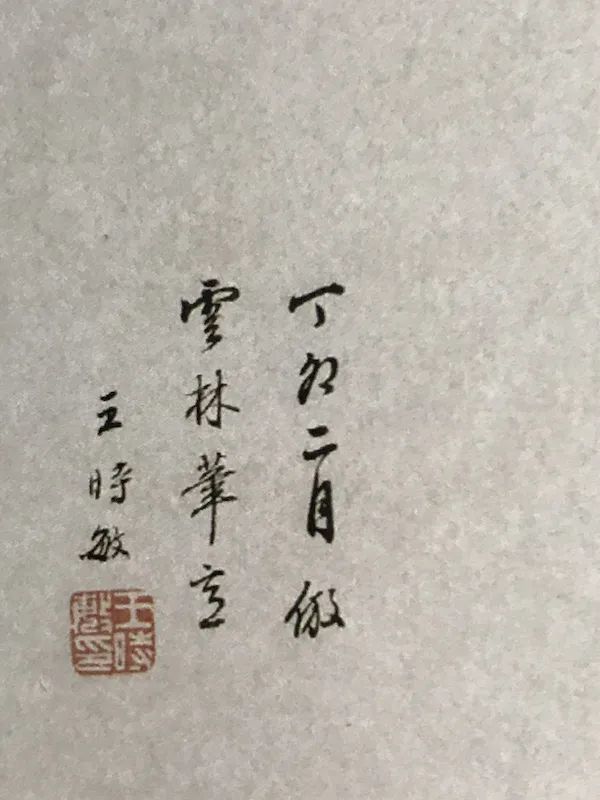 丁卯二月倣
雲林筆意
王時敏
王時敏印